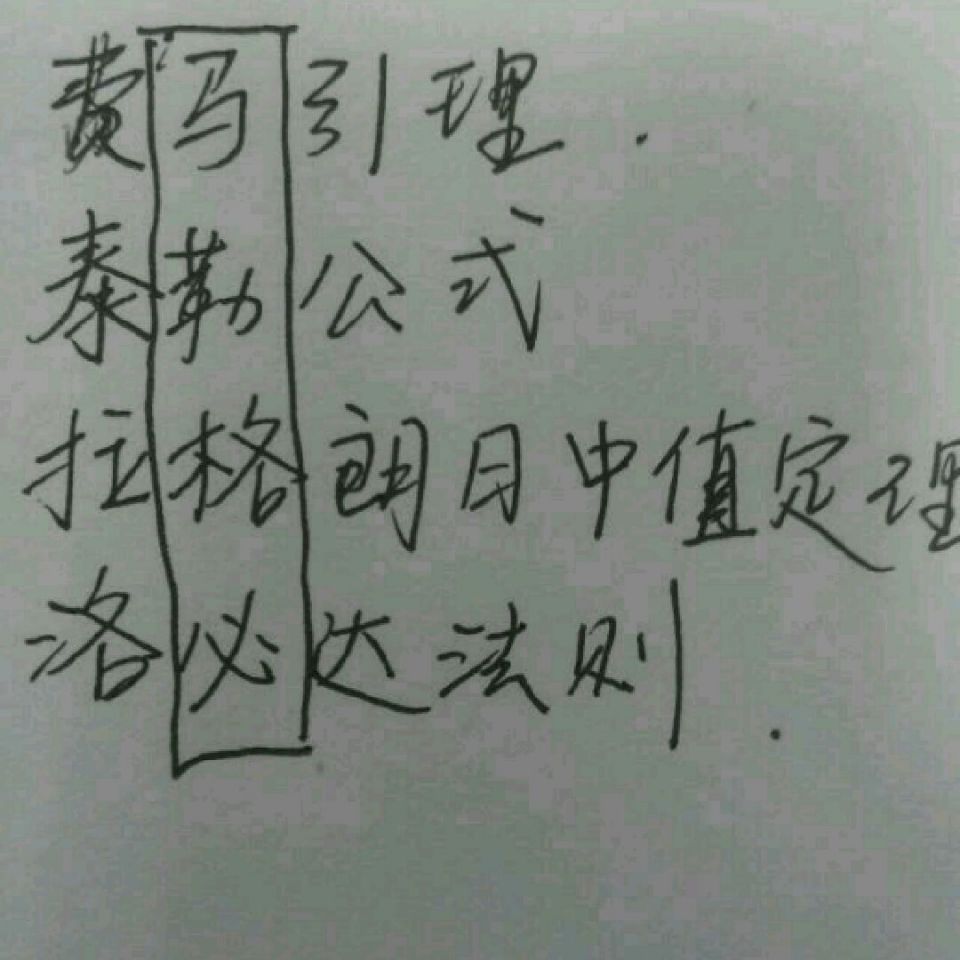 费马引理.
泰勒公式
拉格朗日中值定理
洛必达法则.